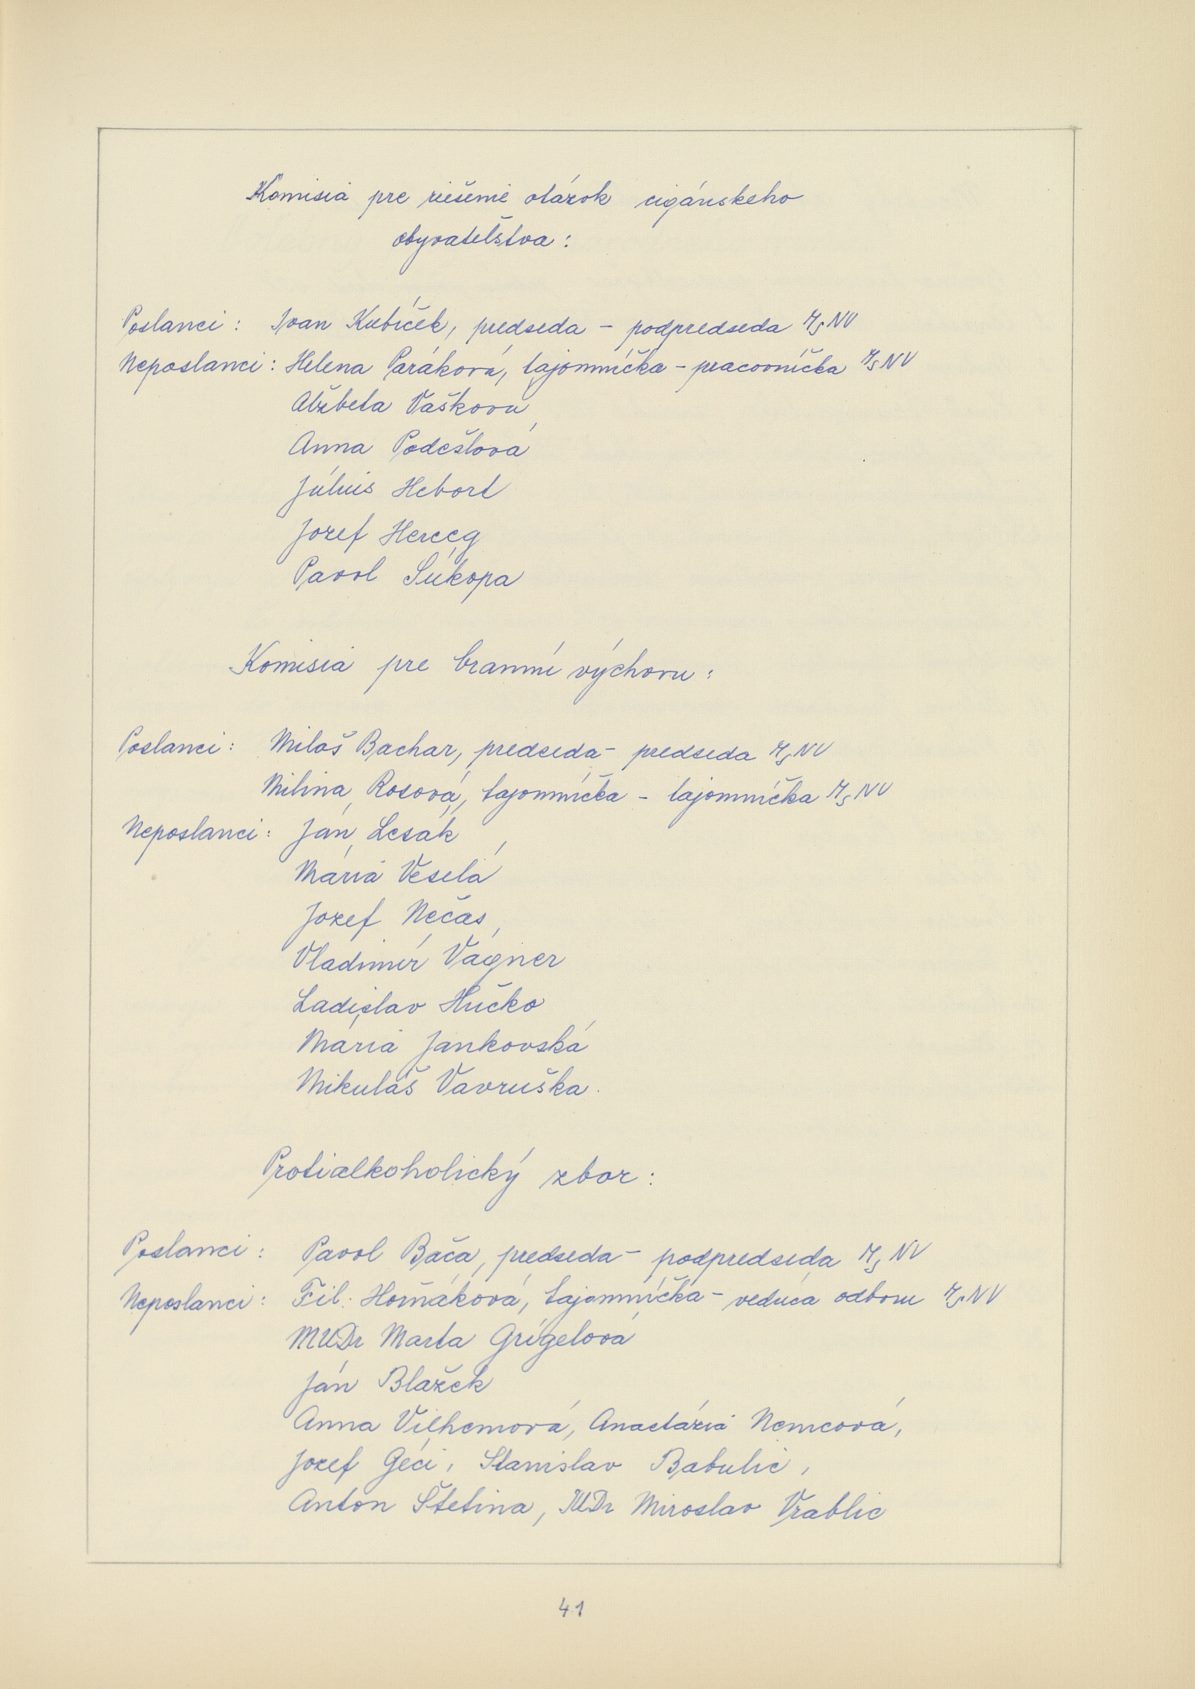 Komisia pre riešenie otázok cigánskeho
obyvateľstva:
Poslanci: Ivan Kubíček, predseda - podpredseda MsNV
Neposlanci: Helena Paráková, tajomníčka - pracovníčka MsNV
Alžbeta Vašková
Anna Podešlová
Július Hebort
Jozef Herceg
Pavol Súkopa
Komisia pre brannú výchovu:
Poslanci: Miloš Bachar, predseda - predseda MsNV
Milina Rosová, tajomníčka - tajomníčka MsNV
Neposlanci: Ján Lesák
Mária Veselá
Jozef Nečas
Vladimír Vágner
Ladislav Hučko
Mária Jankovská
Mikuláš Vavruška.
Protialkoholický zbor:
Poslanci: Pavol Bača, predseda - podpredseda MsNV
Neposlanci: Fil. Horňáková, tajomníčka - vedúca odboru MsNV
MUDr Marta Grígelová
Ján Blažek
Anna Vilhemová, Anastázia Nemcová,
Jozef Géci, Stanislav Babulic,
Anton Štetina, MUDr Miroslav Vrablic
41